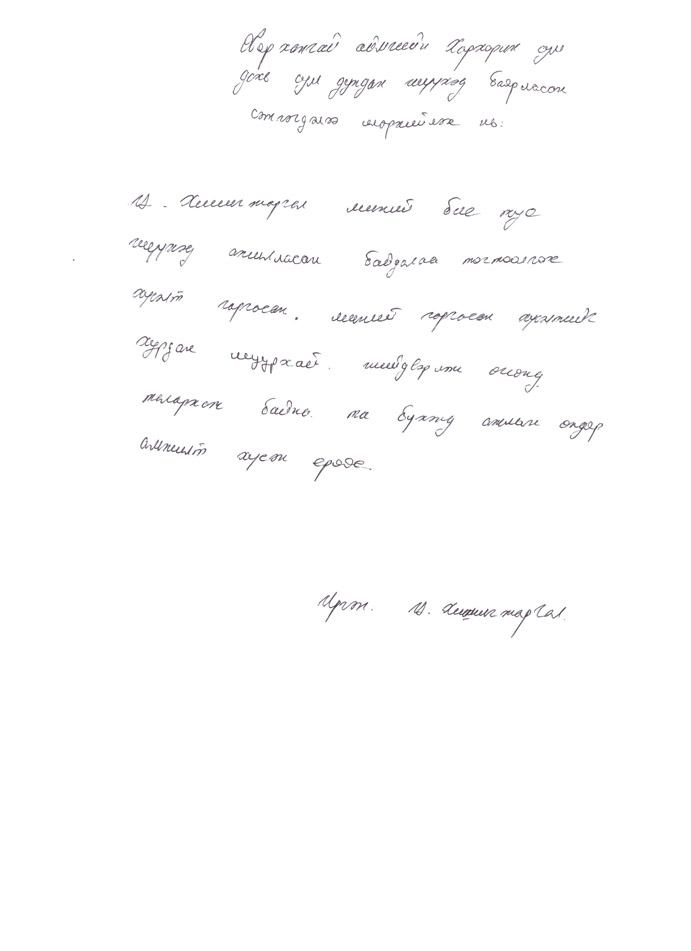 Өвөрхангай аймгийн Хархорин сум
дахь сум дундын шүүхэд баярласан
сэтгэгдлээ илэрхийлэх нь:
Ц. Хишигжаргал миний бие тус
шүүхэд ажилласан байдалаа тогтоолгох
хүсэлт гаргасан. миний гаргасан хүсэлтийг
хурдан шуурхай. шийдвэрлэж өгсөнд
талархаж байна. та бүхэнд ажлын өндөр
амжилт хүсэн ерөөе.
Иргэн. Ц. Хишигжаргал.